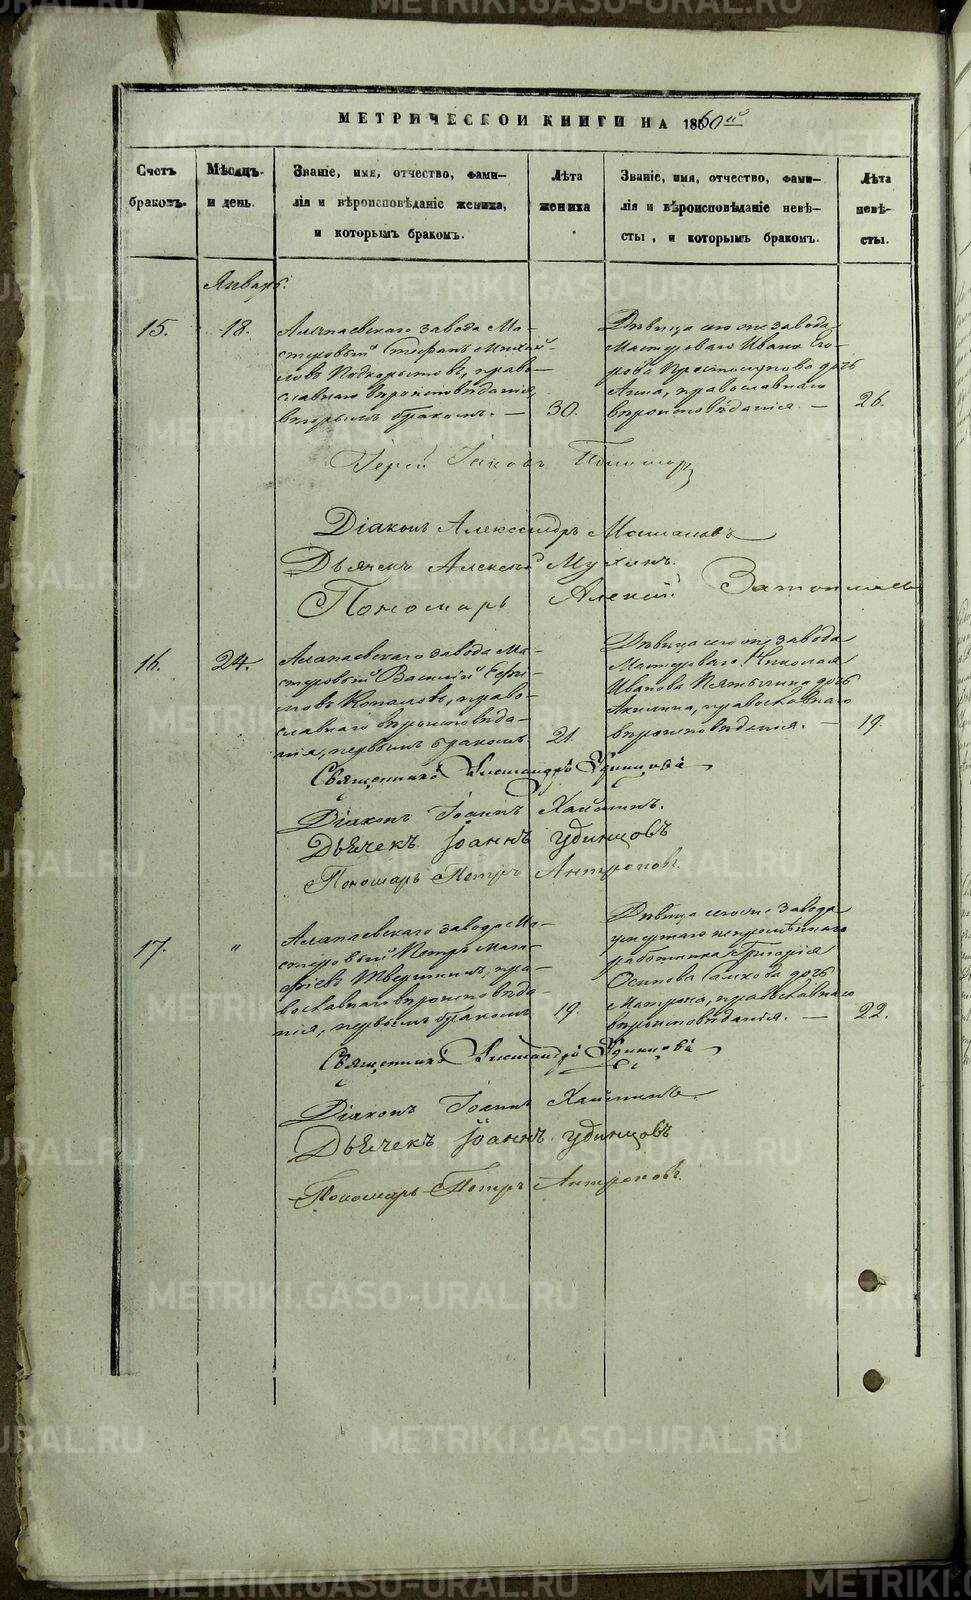 МЕТРИЧЕСКОЙ КНИГИ НА 1860й
Счетъ браковъ.
Мѣсяцъ и день.
Званіе, имя, отчество, фами-
лія и вѣроисповѣданіе жениха,
и которымъ бракомъ.
Лѣта
жениха
Званіе, имя, отчество, фами-
лія и вѣроисповѣданіе невѣ-
сты, и которымъ бракомъ.
Лѣта
невѣ-
сты.
Январь.
15.
18.
Алапаевскаго завода Ма-
стеровый Стефанъ Михай-
ловъ Подкорытовъ, право-
славнаго вѣроисповѣданія,
вторымъ бракомъ. —
30.
Дѣвица сего же завода
Мастероваго Ивана
дочь
Анна, православнаго
вѣроисповѣданія. —
26.
Іерей Іаковъ
Діаконъ Александръ
Дьячекъ Алексѣй Мухинъ.
Пономарь Алексій
16.
24.
Алапаевскаго завода Ма-
стеровый Василій
православнаго вѣроисповѣда-
нія, первымъ бракомъ.
21.
Дѣвица сего же завода
Мастероваго Николая
Иванова дочь
Акилина, православнаго
вѣроисповѣданія. —
19.
Священникъ Александръ Удинцовъ
Діаконъ Іоаннъ
Дьячекъ Іоаннъ Удинцовъ
Пономарь Петръ Антроповъ.
17.
"
Алапаевскаго завода Ма-
стеровый Петръ Мат-
ѳіевъ Тверитинъ, пра-
вославнаго вѣроисповѣда-
нія, первымъ бракомъ
19.
Дѣвица сего же завода
умершаго непремѣннаго
работника Григорія
Осипова дочь
Матрона, православнаго
вѣроисповѣданія. —
22.
Священникъ Александръ Удинцовъ
Діаконъ Іоаннъ
Дьячекъ Іоаннъ Удинцовъ
Пономарь Петръ Антроповъ.
METRIKI.GASO-URAL.RU